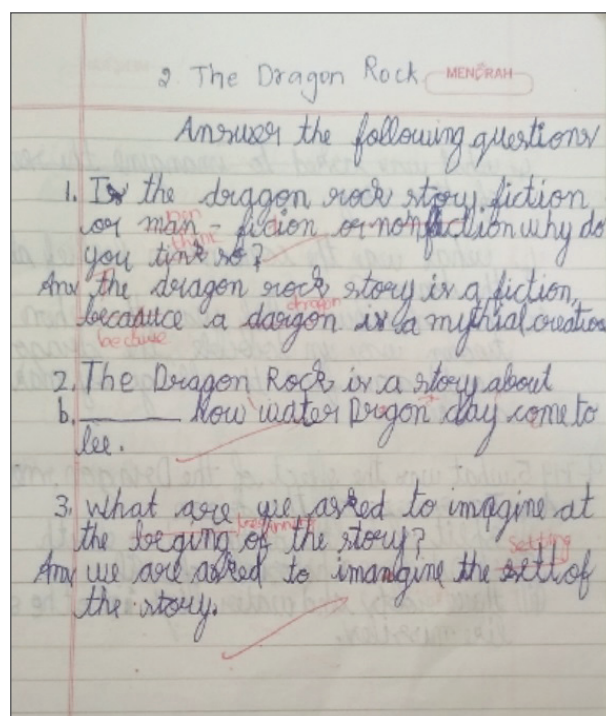 2. The Dragon Rock MENORAH
Answer the following questions
1. Is the draggon rock story fiction
non
or man - ficion or nonfiction why do
think
you tink so?
Ans the dragon rock story is a fiction,
dragon
becauuce a dargon is a mythial creation
because
2. The Dragon Rock is a story about
b. ______ how water Drgon day come to
lee.
3. what are we asked to imagine at
beginning
the beging of the story?
setting
Ans we are asked to imangine the settl of
the story.